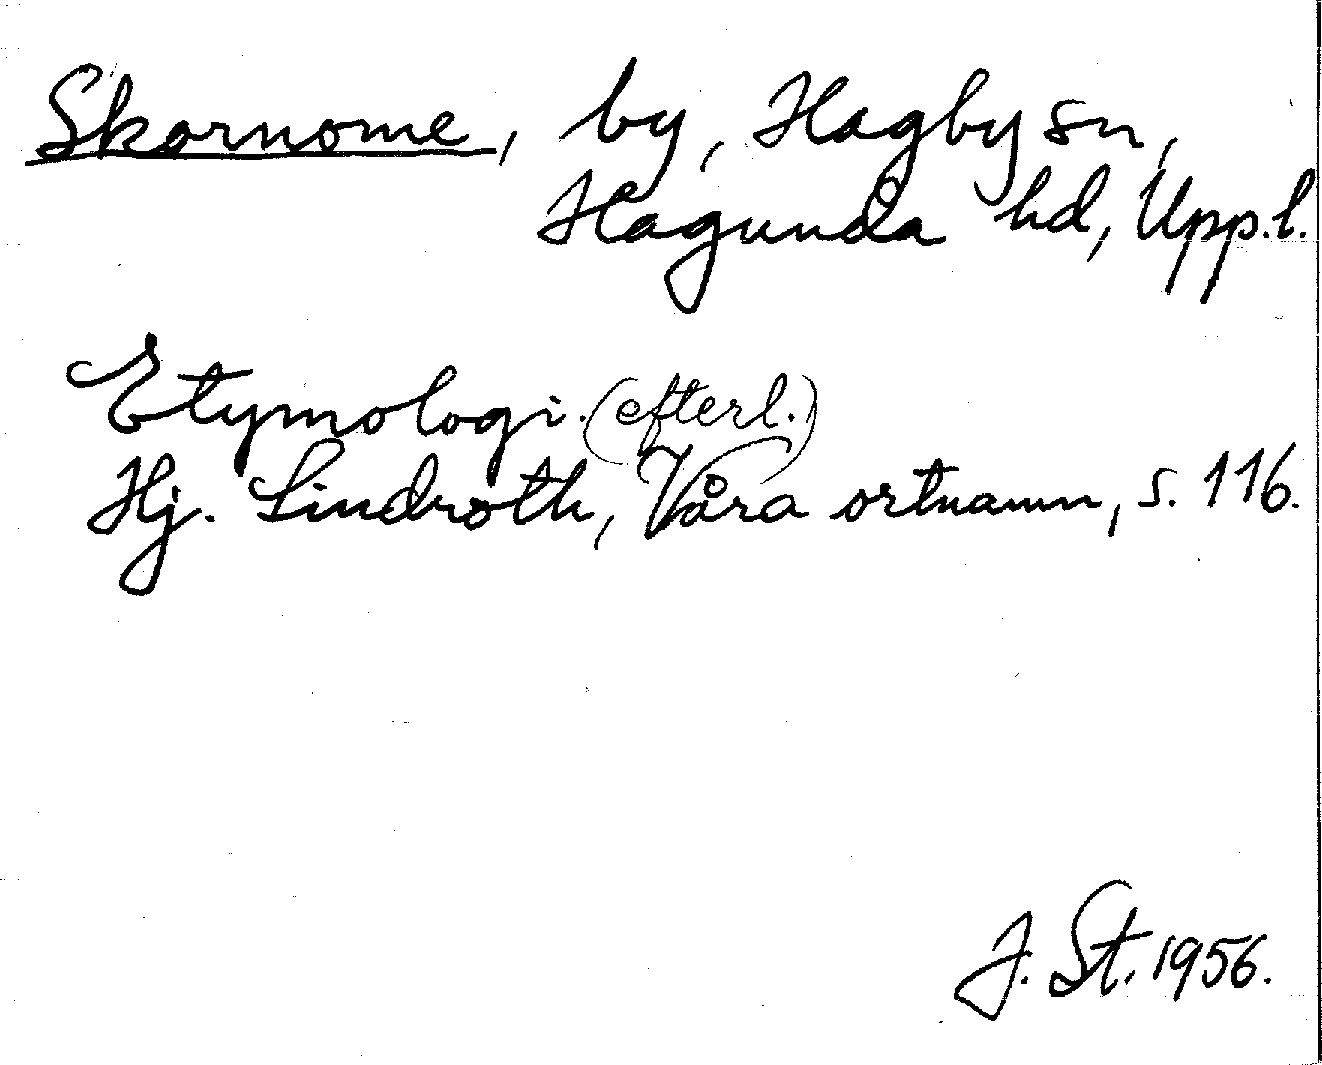 Skarnome, by, Hagby sn,
Hagunda hd, Uppl.
Etymologi. (efterl.)
Hj. Lindroth, Våra ortnamn, s. 116.
J. St. 1956.